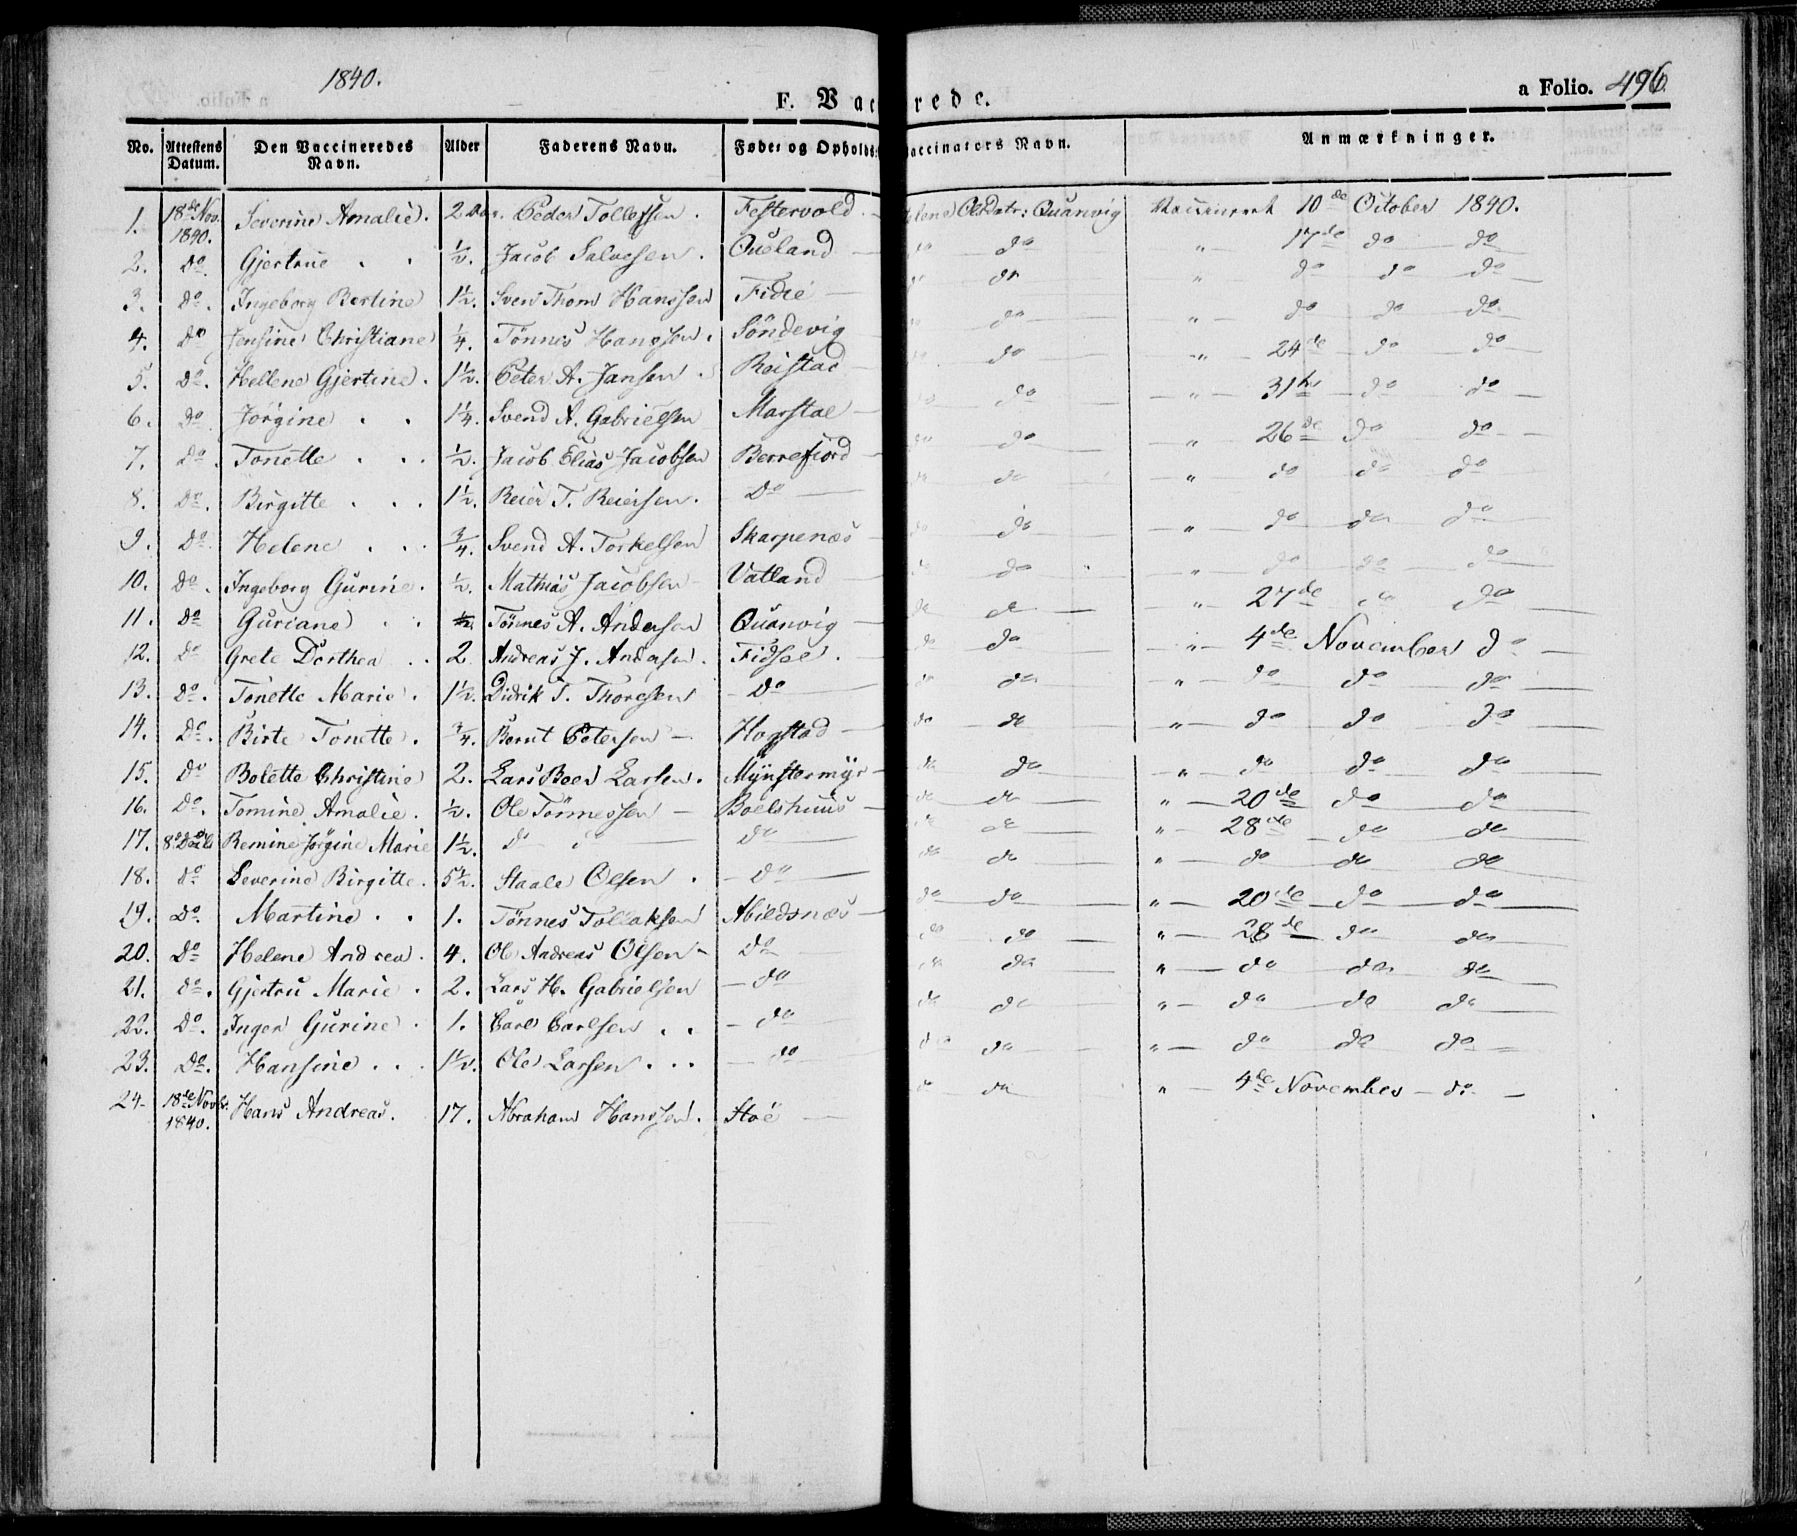 1840.
F. Vac rede. a Folio. 496.
No. Attestens Datum. Den Vaccineredes Navn. Alder Faderens Navn. Føde- og Opholds- accinators Navn. Anmærkninger.
1. 18de Nov. 1840. Severine Amalie. 2 Aar. Peder Tollefsen. Festervold. - elene Olsdatr: Quanvig Vaccineret 10de October 1840.
2. Do. Gjertrue . . ½. Jacob Salvesen. Oueland - do do " - 17de do do
3. Do. Ingeborg Bertine 1½. Sven Thom Hanssen Fidie - do do " do do do
4. Do Jensine Christiane ¼. Tønnes Hansen. Söndevig - do do " do do do.
5. Do. Hellene Gjertine. 1½. Peter A. Jansen. Reistad - do do " - 24de do do
6. Do Jörgine . . 1¼. Svend A. Gabrielsen Marstal - do do " - 31te do do
7. Do. Tonette . . ½. Jacob Elias Jacobsen Berrefiord - do do " 26de do do
8. Do. Birgitte . . . 1½. Reier T. Reiersen. - Do - do do " do do do
9. Do. Helene . . . ¾. Svend A. Torkelsen Skarpenæs - do do " do do do
10. Do. Ingeborg Gurine. ½. Mathias Jacobsen Vatland - do do " do do do
11. Do Guriane . . ½. Tönnes A. Andersen Quanvig - do do " - 27de do do
12. Do Grete Dorthea . . 2 Andreas J. Andersen. Fidsel. - do do " - 4de November do
13. Do. Tonette Marie. 1½. Didrik T. Thoresen - Do - do do " do do do
14. Do. Birte Tonette. ¾. Bernt Petersen - Hogstad - do do " do do do
15. Do Bolette Christine 2. Lars Beer Larsen. Mÿnstermÿr - do do " do do do
16. Do. Tomine Amalie. ½. Ole Tönnessen - Boelshuus - do do " - 20de do do
17. 8de Remine Jörgine Marie 1½. do do do - do do " - 28de do do
18. do Severine Birgitte. 5½. Staale Olsen . - Do - do do " - do do do
19. Do. Martine . . 1. Tönnes Tollaksen Abildsnæs - do do " - 20de do do
20. Do Helene Andrea. 4. Ole Andreas Olsen - do - do do " - 28de do do
21. do. Gjertru Marie . 2. Lars H. Gabrielsen - do do do " - do do do
22. Do. Inger Gurine . 1. Carl Carlsen . . - do - do do " - do do do
23. Do. Hansine . . . 1½. Ole Larsen . . . - do do do " - do do do
24. 18de Novbr. 1840. Hans Andreas. 17. Abraham Hanssen. Stoé - do do " - 4de November - do. -